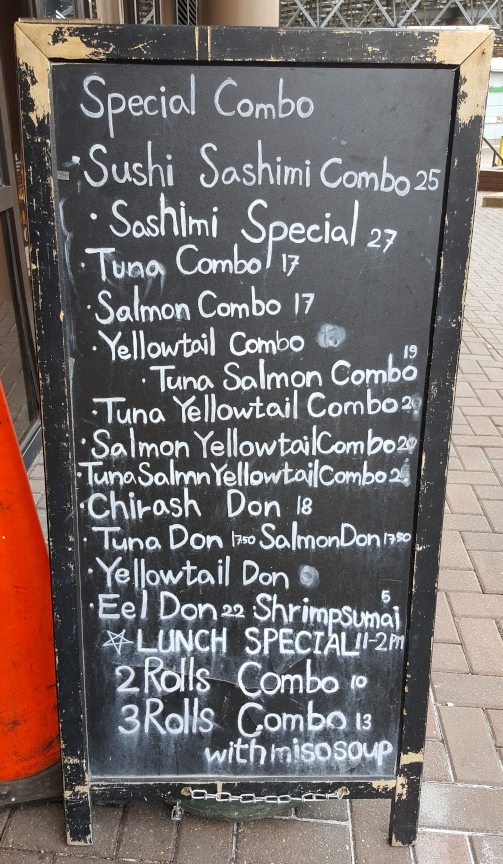 Special Combo
·Sushi Sashimi Combo 25
·Sashimi Special 27
·Tuna Combo 17
·Salmon Combo 17
·Yellowtail Combo
·Tuna Salmon Combo 19
·Tuna Yellowtail Combo
·Salmon Yellowtail Combo 20
·Tuna Salmn Yellowtail Combo
·Chirash Don 18
·Tuna Don 1750 Salmon Don 1750
·Yellowtail Don
·Eel Don 22 Shrimpsumai 5
☆ LUNCH SPECIAL 11-2PM
2 Rolls Combo 10
3 Rolls Combo 13
with misosoup